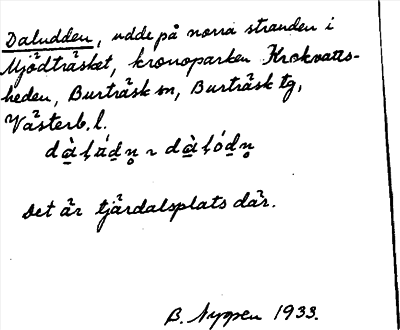 Daludden, udde på norra stranden i
Mjödträsket, kronoparken Krokvatts-
heden, Burträsk sn, Burträsk tg,
Västerb. l.
Det är tjärdalsplats där.
B. Nyggen 1933.